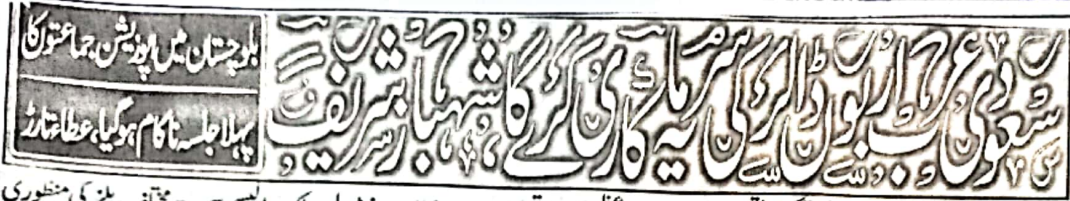 سعودی عرب اربوں ڈالر کی سرمایہ کاری کرے گا، شہباز شریف
بلوچستان میں اپوزیشن جماعتوں کا
پہلا جلسہ ناکام ہو گیا، عطا تارڑ
مختلف بلز کی منظوری